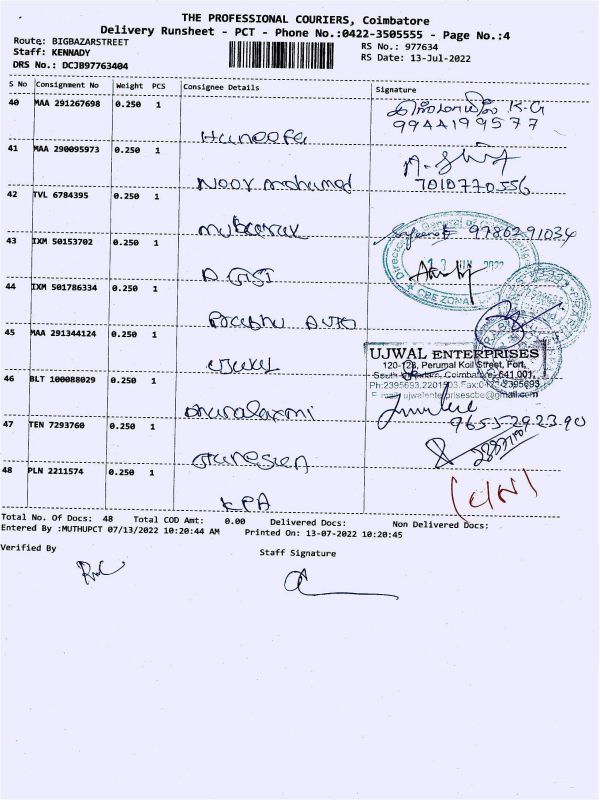 THE PROFESSIONAL COURIERS, Coimbatore
Delivery Runsheet - PCT - Phone No.:0422-3505555 - Page No.:4
Route: BIGBAZARSTREET
RS No.: 977634
Staff: KENNADY
RS Date: 13-Jul-2022
DRS No.: DCJB97763404
S No Consignment No Weight PCS Consignee Details Signature
40 MAA 291267698 0.250 1
K.G
9944199577
Haneefa
41 MAA 290095973 0.250 1
7010770556
Noor mohamed
42 TVL 6784395 0.250 1
Mubarak
9786291034
43 IXM 50153702 0.250 1
D.GST
CBE ZONAL
44 IXM 501786334 0.250 1
Prabhu Auto
45 MAA 291344124 0.250 1
UJWAL ENTERPRISES
120-128, Perumal Koil Street, Fort,
South Ukkadam, Coimbatore-641 001.
Ph:2395693,2201503.Fax:0422-2395693
E-mail: ujwalenterprisescbe@gmail.com
ujwal
46 BLT 100088029 0.250 1
Dhunalaxmi
47 TEN 7293760 0.250 1
9655292390
48 PLN 2211574 0.250 1
KPA
Total No. Of Docs: 48 Total COD Amt: 0.00 Delivered Docs: Non Delivered Docs:
Entered By :MUTHUPCT 07/13/2022 10:20:44 AM Printed On: 13-07-2022 10:20:45
Verified By
Staff Signature